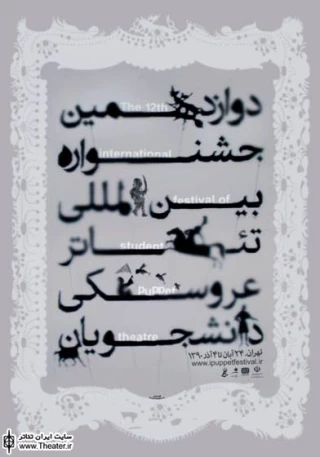 دوازدهمین
The 12th
جشنواره
international
بین المللی
festival of
تئاتر
student
عروسکی
Puppet
دانشجویان
theatre
تهران، ۲۴ آبان تا ۴ آذر ۱۳۹۰
www.ipuppetfestival.ir
سایت ایران تئاتر
www.Theater.ir